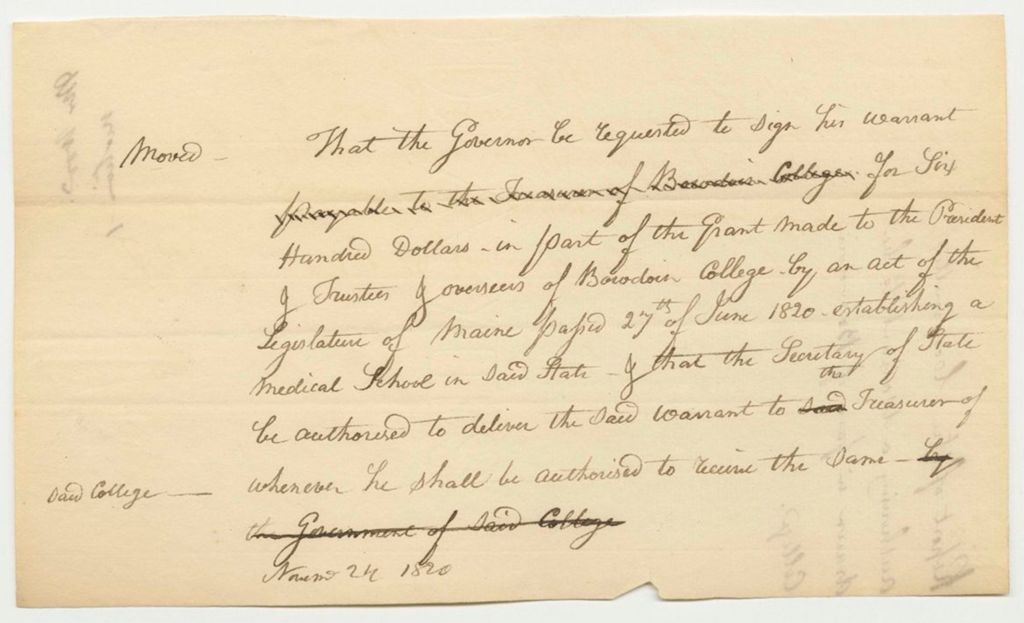 Moved – That the Governor be requested to sign his warrant
payable to the Treasurer of Bowdoin College. for Six
Hundred Dollars – in part of the Grant made to the President
& Trustees & overseers of Bowdoin College – by an act of the
Legislature of Maine passed 27th of June 1820 – establishing a
Medical School in said State – & that the Secretary of State
be authorised to deliver the said warrant to said the Treasurer of
said College — whenever he shall be authorised to receive the same – by
the Government of said College
Novemr 24 1820